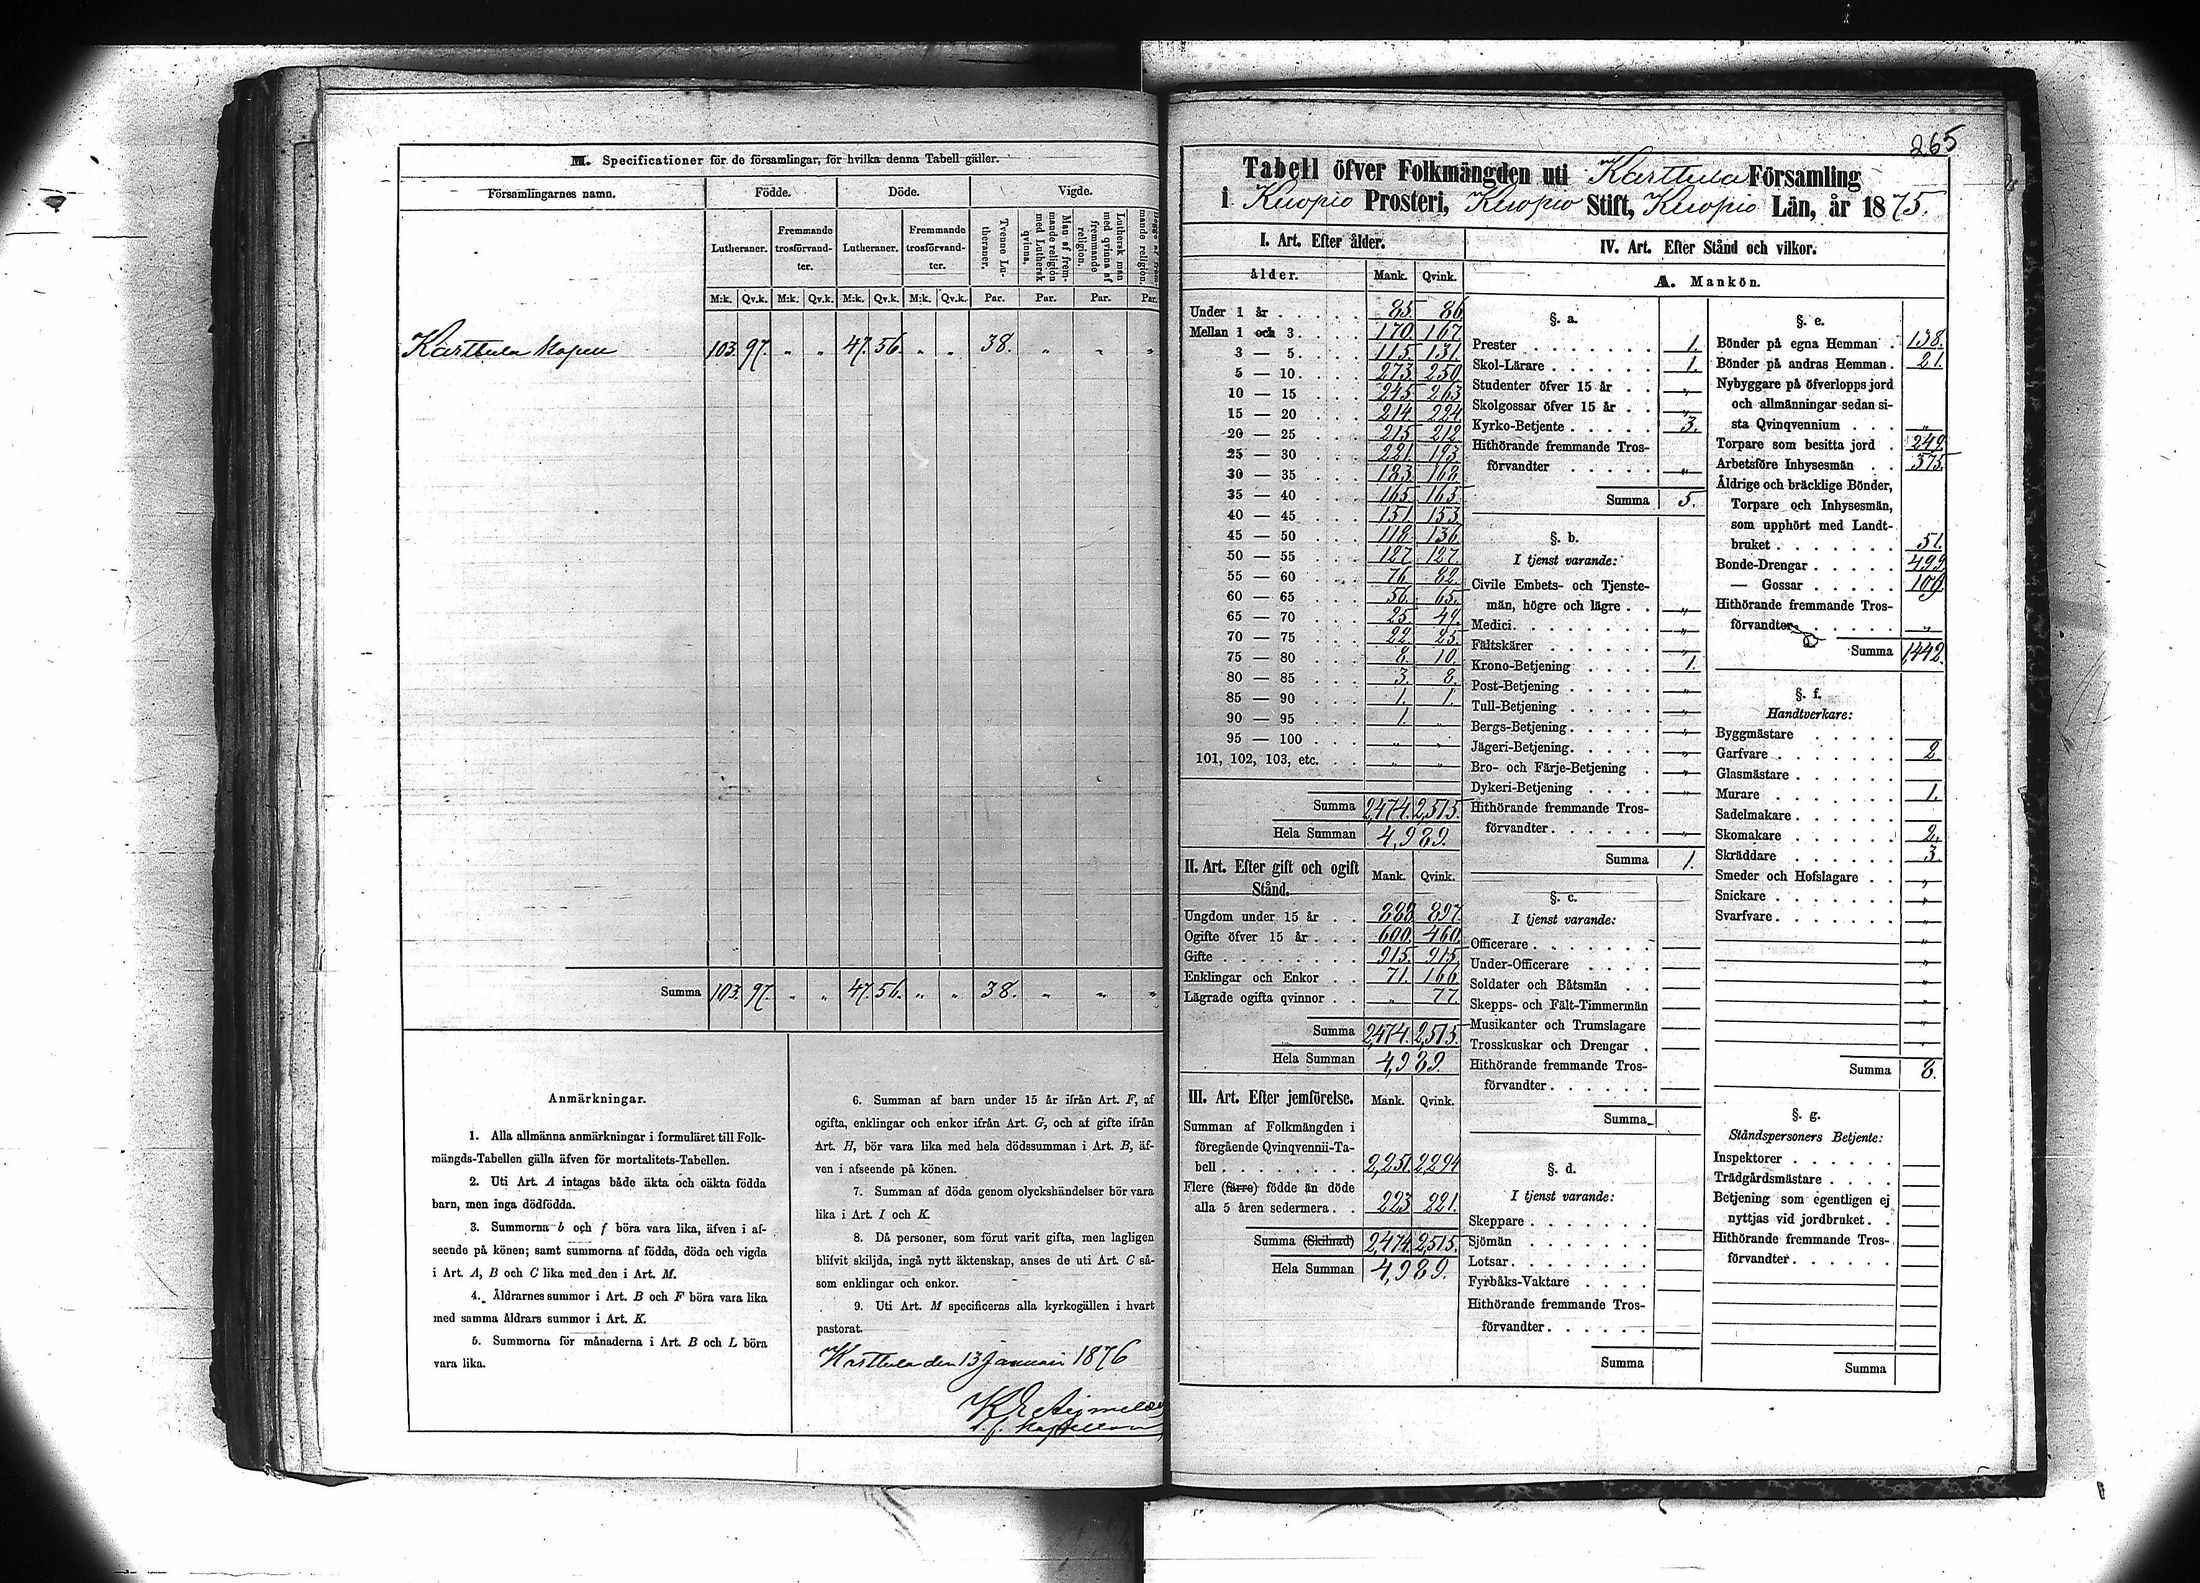 M. Specificationer för de församlingar, för hvilka denna Tabell gäller.
Församlingarnes namn. Födde. Döde. Vigde.
Lutheraner. Fremmande trosförvandter. Lutheraner. Fremmande trosförvandter. Tvenne Lutheraner. Man af fremmande religion med Luthersk qvinna. Luthersk man med qvinna af fremmande religion.
M:k. Qv.k. M:k. Qv.k. M:k. Qv.k. M:k. Qv.k. Par. Par. Par. Par.
Karttula Kapell 103. 97. „ „ 47. 56. „ „ 38. „ „ „
Summa 103. 97. „ „ 47. 56. „ „ 38. „ „ „
Anmärkningar.
1. Alla allmänna anmärkningar i formuläret till Folk-
mängds-Tabellen gälla äfven för mortalitets-Tabellen.
2. Uti Art. A intagas både äkta och oäkta födda
barn, men inga dödfödda.
3. Summorna b och f böra vara lika, äfven i af-
seende på könen; samt summorna af födda, döda och vigda
i Art. A, B och C lika med den i Art. M.
4. Åldrarnes summor i Art. B och F böra vara lika
med samma åldrars summor i Art. K.
5. Summorna för månaderna i Art. B och L böra
vara lika.
6. Summan af barn under 15 år ifrån Art. F, af
ogifta, enklingar och enkor ifrån Art. G, och af gifte ifrån
Art. H, bör vara lika med hela dödssumman i Art. B, äf-
ven i afseende på könen.
7. Summan af döda genom olyckshändelser bör vara
lika i Art. I och K.
8. Då personer, som förut varit gifta, men lagligen
blifvit skiljda, ingå nytt äktenskap, anses de uti Art. C så-
som enklingar och enkor.
9. Uti Art. M specificeras alla kyrkogällen i hvart
pastorat.
Karttula den 13 Januari 1876
265
Tabell öfver Folkmängden uti Karttula Församling
i Kuopio Prosteri, Kuopio Stift, Kuopio Län, år 1875.
I. Art. Efter ålder.
ålder. Mank. Qvink.
Under 1 år 85. 86.
Mellan 1 och 3 170. 167.
3 — 5 115. 131.
5 — 10 273. 250.
10 — 15 245. 263.
15 — 20 214. 224.
20 — 25 215. 212.
25 — 30 221. 193.
30 — 35 183. 168.
35 — 40 165. 165.
40 — 45 151. 153.
45 — 50 118. 136.
50 — 55 127. 127.
55 — 60 76. 82.
60 — 65 56. 65.
65 — 70 25. 49.
70 — 75 22. 25.
75 — 80 8. 10.
80 — 85 3. 8.
85 — 90 1. 1.
90 — 95 1. „
95 — 100 „ „
101, 102, 103, etc. „ „
Summa 2,474. 2,515.
Hela Summan 4,989.
II. Art. Efter gift och ogift Stånd. Mank. Qvink.
Ungdom under 15 år 888. 897.
Ogifte öfver 15 år 600. 460.
Gifte 915. 915.
Enklingar och Enkor 71. 166.
Lägrade ogifta qvinnor „ 77.
Summa 2,474. 2,515.
Hela Summan 4,989.
III. Art. Efter jemförelse. Mank. Qvink.
Summan af Folkmängden i
föregående Qvinqvennii-Ta-
bell 2,251. 2294
Flere (färre) födde än döde
alla 5 åren sedermera 223. 221.
Summa (Skilnad) 2,474. 2,515.
Hela Summan 4,989.
IV. Art. Efter Stånd och vilkor.
A. Mankön.
§. a.
Prester 1.
Skol-Lärare 1.
Studenter öfver 15 år „
Skolgossar öfver 15 år „
Kyrko-Betjente 3.
Hithörande fremmande Tros-
förvandter „
Summa 5.
§. b.
I tjenst varande:
Civile Embets- och Tjenste-
män, högre och lägre „
Medici „
Fältskärer „
Krono-Betjening 1.
Post-Betjening „
Tull-Betjening „
Bergs-Betjening „
Jägeri-Betjening „
Bro- och Färje-Betjening „
Dykeri-Betjening „
Hithörande fremmande Tros-
förvandter „
Summa 1.
§. c.
I tjenst varande:
Officerare
Under-Officerare
Soldater och Båtsmän
Skepps- och Fält-Timmermän
Musikanter och Trumslagare
Trosskuskar och Drengar
Hithörande fremmande Tros-
förvandter
Summa
§. d.
I tjenst varande:
Skeppare
Sjömän
Lotsar
Fyrbåks-Vaktare
Hithörande fremmande Tros-
förvandter
Summa
§. e.
Bönder på egna Hemman 138.
Bönder på andras Hemman 21.
Nybyggare på öfverlopps jord
och allmänningar sedan si-
sta Qvinqvennium „
Torpare som besitta jord 249.
Arbetsföre Inhysesmän 375.
Åldrige och bräcklige Bönder,
Torpare och Inhysesmän,
som upphört med Landt-
bruket 51.
Bonde-Drengar 499.
— Gossar 109.
Hithörande fremmande Tros-
förvandter „
Summa 1,442.
§. f.
Handtverkare:
Byggmästare
Garfvare 2.
Glasmästare
Murare 1.
Sadelmakare
Skomakare 2.
Skräddare 3.
Smeder och Hofslagare „
Snickare „
Svarfvare „
Summa 8.
§. g.
Ståndspersoners Betjente:
Inspektorer
Trädgårdsmästare
Betjening som egentligen ej
nyttjas vid jordbruket
Hithörande fremmande Tros-
förvandter
Summa